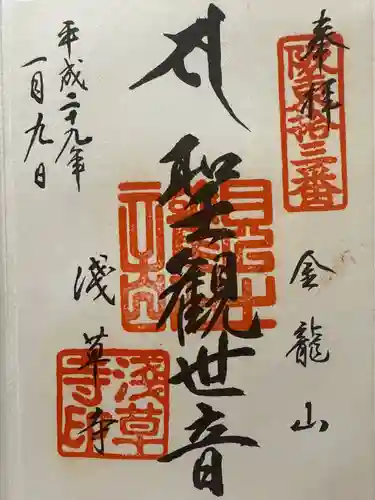 奉拝
坂東拾三番
金龍山
聖観世音
浅草寺
平成二十九年
一月九日
浅草寺印